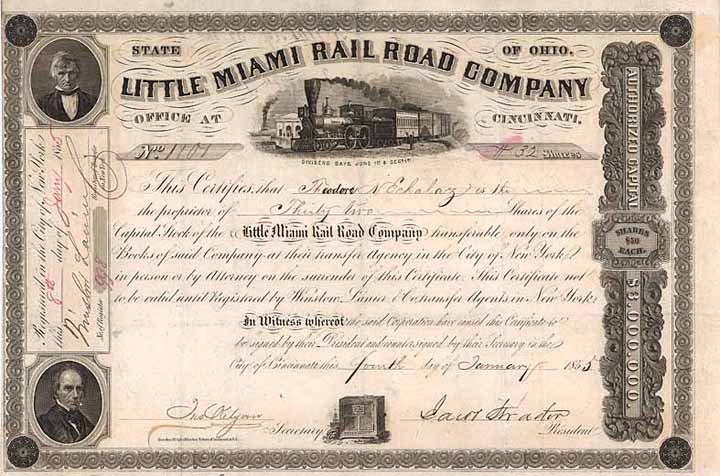 STATE OF OHIO.
LITTLE MIAMI RAIL ROAD COMPANY
OFFICE AT CINCINNATI.
No. 1101 32 Shares
This Certifies, that Theodore N Echalaz is the
the proprietor of Thirty two Shares of the
Capital Stock of the Little Miami Rail Road Company transferable only on the
Books of said Company at their transfer Agency in the City of New York,
in person or by Attorney on the surrender of this Certificate. This Certificate not
to be valid until Registered by Winslow, Lanier & Co. transfer Agents in New York.
In Witness whereof the said Corporation have caused this Certificate to
be signed by their President and countersigned by their Secretary in the
City of Cincinnati this fourth day of January 1855
Secretary
Jacob Strader
President
Registered in the City of New York
this 8th day of Jany 1855
Winslow Lanier
AUTHORIZED CAPITAL
SHARES
$50
EACH.
$3,000,000.